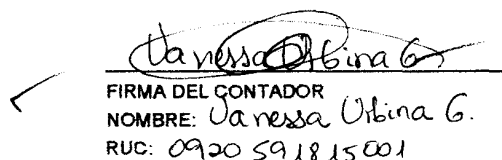 Vanessa Urbina G
FIRMA DEL CONTADOR
NOMBRE: Vanessa Urbina G.
RUC: 0920591815001